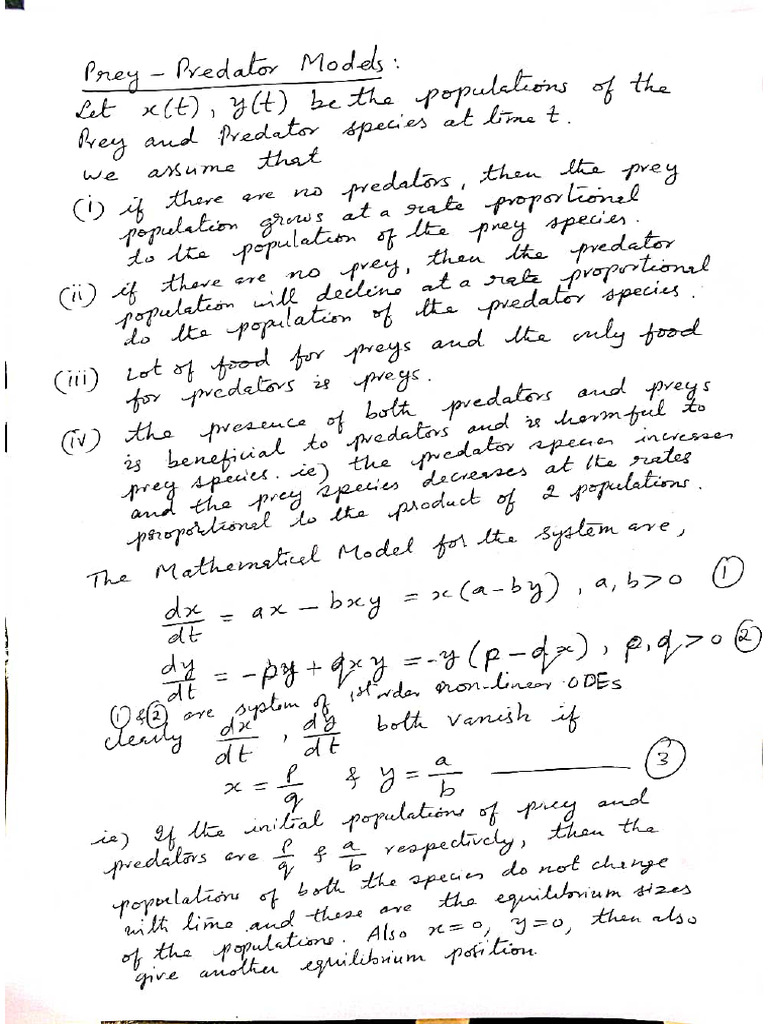 Prey - Predator Models:
Let x(t), y(t) be the populations of the
Prey and Predator species at time t.
we assume that
(i) if there are no predators, then the prey
population grows at a rate proportional
to the population of the prey species.
(ii) if there are no prey, then the predator
population will decline at a rate proportional
to the population of the predator species.
(iii) Lot of food for preys and the only food
for predators is preys.
(iv) the presence of both predators and preys
is beneficial to predators and is harmful to
prey species. ie) the predator species increases
and the prey species decreases at the rates
proportional to the product of 2 populations.
The Mathematical Model for the system are,
dx/dt = ax - bxy = x(a-by), a, b>0 ①
dy/dt = -py + qxy = -y(p-qx), p, q>0 ②
① & ② are system of 1st order non-linear ODEs
clearly dx/dt, dy/dt both vanish if
x = p/q & y = a/b ——— ③
ie) If the initial populations of prey and
predators are p/q & a/b respectively, then the
populations of both the species do not change
with time and these are the equilibrium sizes
of the populations. Also x=0, y=0, then also
give another equilibrium position.